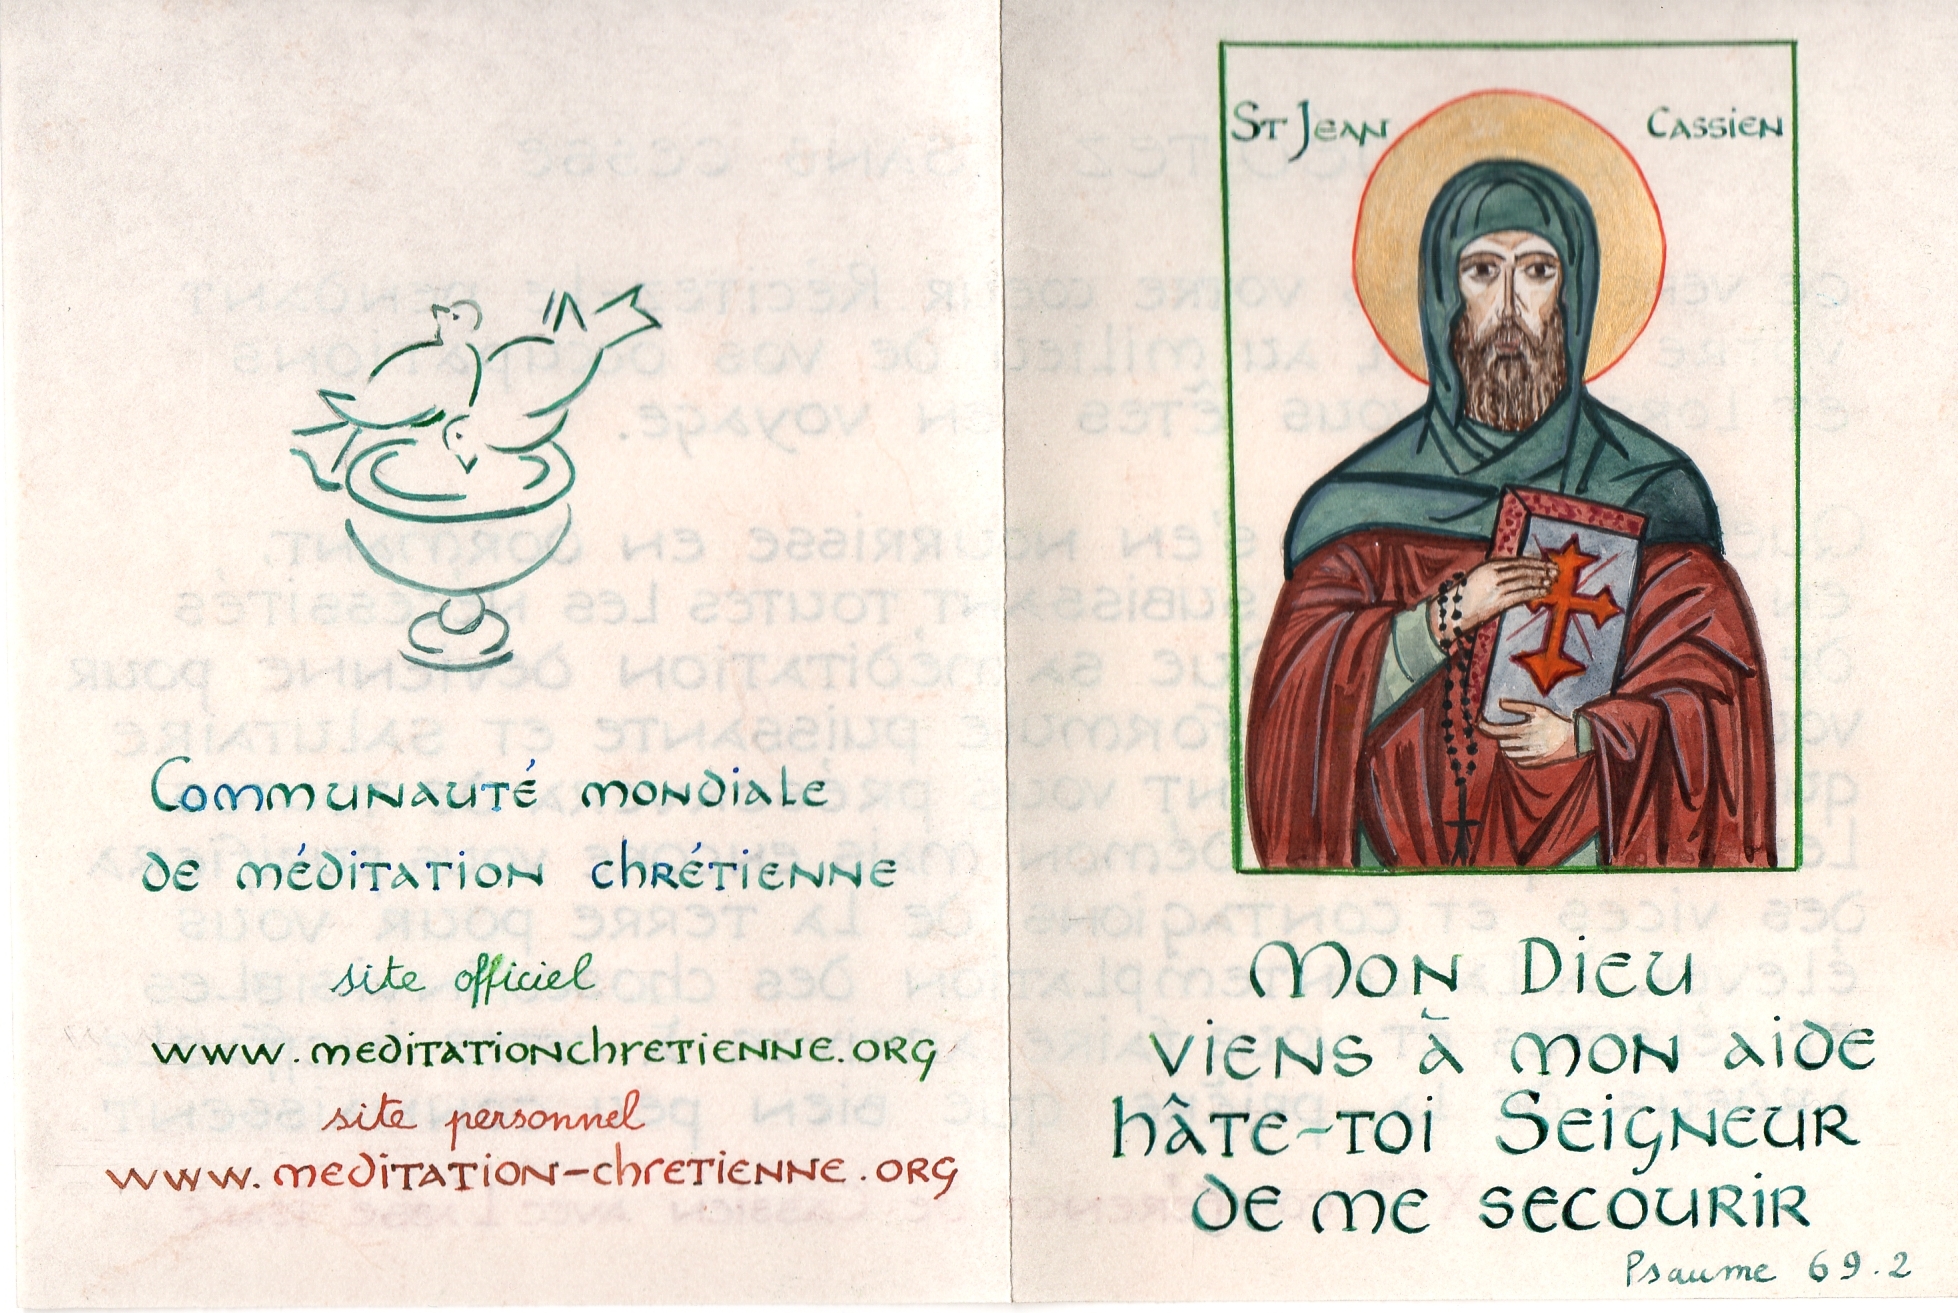 Communauté mondiale
de méditation chrétienne
site officiel
www.meditationchretienne.org
site personnel
www.meditation-chretienne.org
St Jean Cassien
Mon Dieu
viens à mon aide
hâte-toi Seigneur
de me secourir
Psaume 69.2